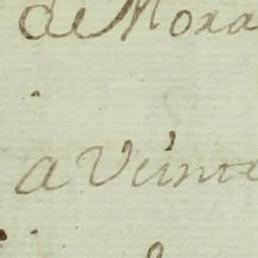 de Mora
a Veinte